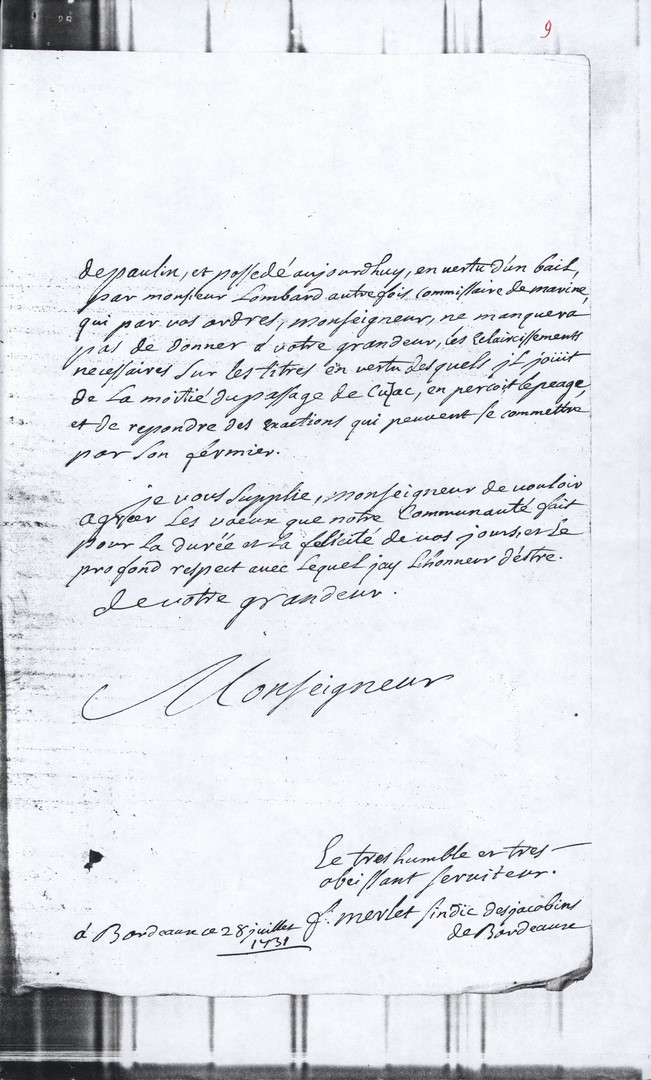 9
de paulin, et possedé aujourdhuy, en vertu d'un bail,
par monsieur Lombard autrefois commissaire de marine,
qui par vos ordres, monseigneur, ne manquera
pas de donner a votre grandeur, les Eclaircissements
necessaires sur les titres en vertu desquels jL joüit
de La moitié du passage de Cuzac, en percoit le peage,
et de repondre des Exactions qui peuvent se commettre
par son férmier.
je vous supplie, monseigneur de vouloir
agréer Les voeux que notre Communauté fait
pour La durée et La félicité de vos jours, et Le
profond respect avec Lequel jay L'honneur d'éstre.
de votre grandeur.
Monseigneur
Le tres humble et tres
obeissant serviteur.
f. merlet sindic des jacobins
de Bordeaux
á Bordeaux ce 28 juillet
1731